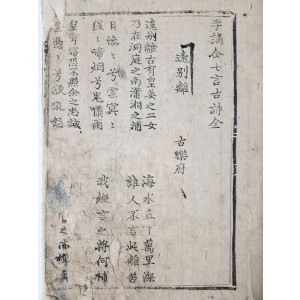 李謫仙七言古詩全
遠別離 古樂府
遠別離古有皇英之二女
乃在洞庭之南瀟湘之浦
海水直下萬里深
誰人不言此離苦
日慘〻兮雲冥〻
猩〻啼烟兮鬼嘯雨
我縱言之將何補
皇穹竊恐不照余之忠誠
憑〻兮欲吼怒